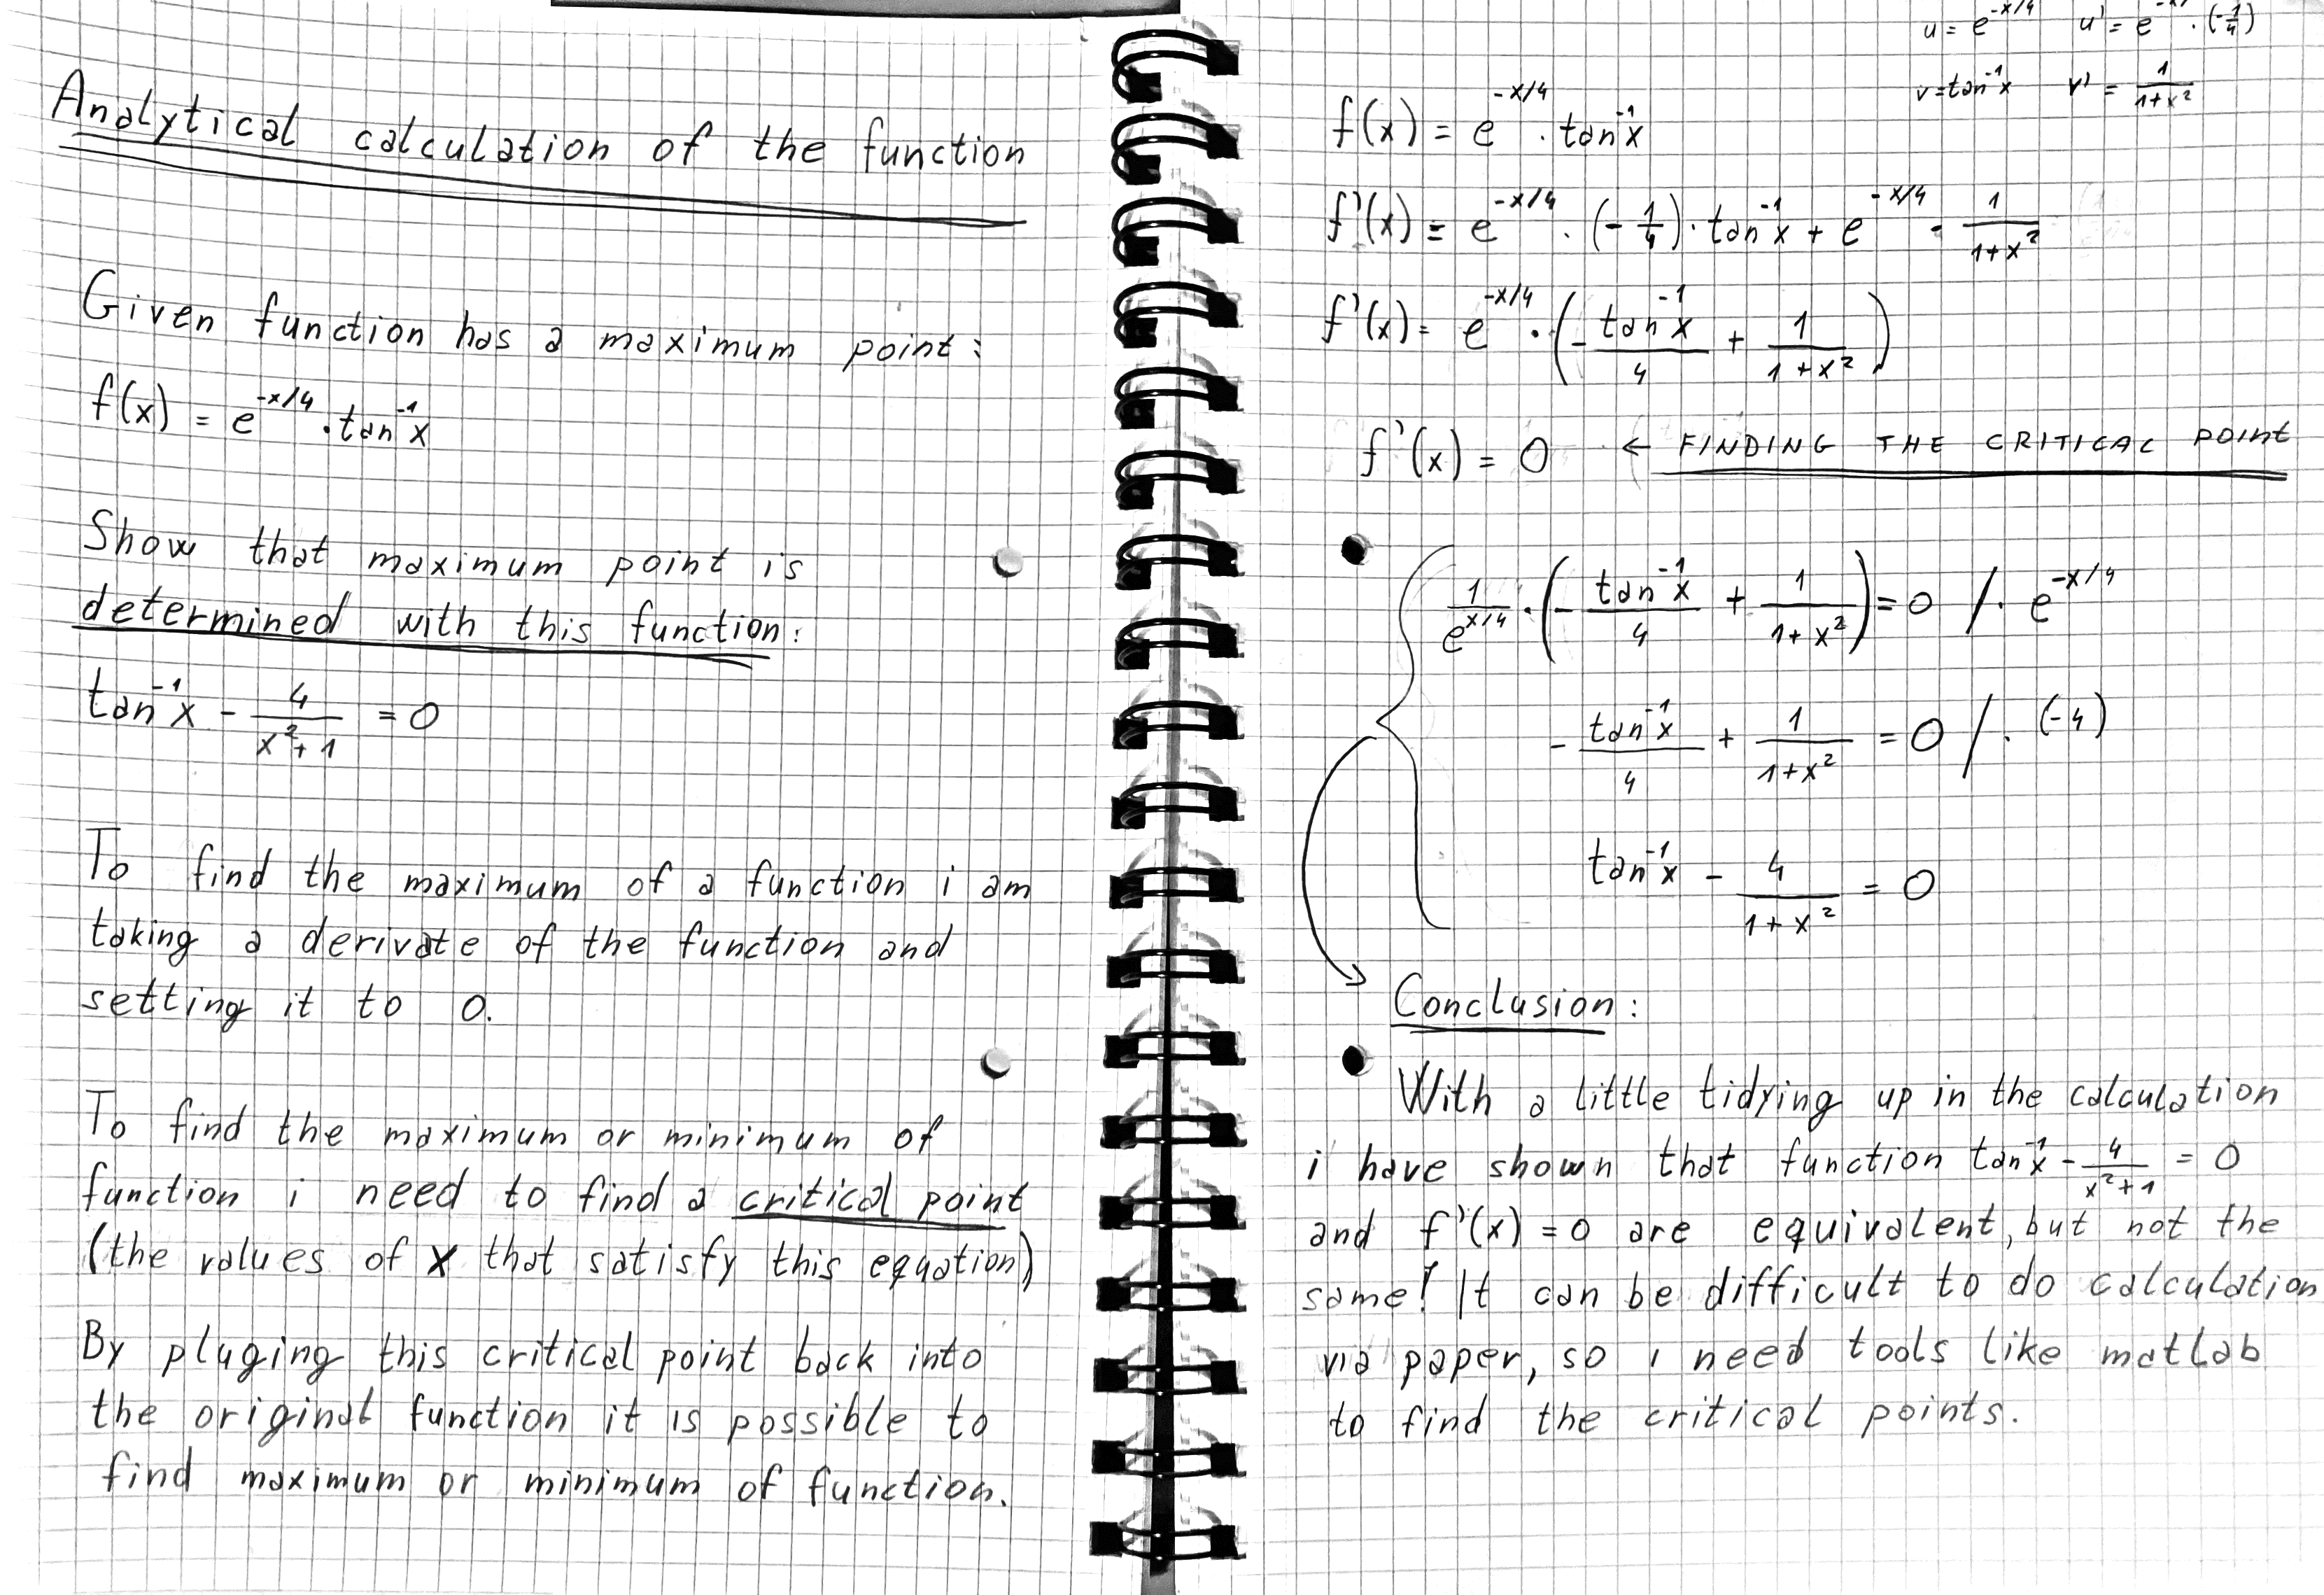 Analytical calculation of the function
Given function has a maximum point:
f(x) = e^(-x/4) · tan⁻¹x
Show that maximum point is
determined with this function:
tan⁻¹x - 4/(x²+1) = 0
To find the maximum of a function i am
taking a derivate of the function and
setting it to 0.
To find the maximum or minimum of
function i need to find a critical point
(the values of x that satisfy this equation)
By pluging this critical point back into
the original function it is possible to
find maximum or minimum of function.
u = e^(-x/4) u' = e^(-x/ · (-1/4)
v = tan⁻¹x v' = 1/(1+x²)
f(x) = e^(-x/4) · tan⁻¹x
f'(x) = e^(-x/4) · (-1/4) · tan⁻¹x + e^(-x/4) · 1/(1+x²)
f'(x) = e^(-x/4) · (-tan⁻¹x/4 + 1/(1+x²))
f'(x) = 0 ← FINDING THE CRITICAL POINT
1/e^(x/4) · (-tan⁻¹x/4 + 1/(1+x²)) = 0 / · e^(-x/4)
-tan⁻¹x/4 + 1/(1+x²) = 0 / · (-4)
tan⁻¹x - 4/(1+x²) = 0
Conclusion:
With a little tidying up in the calculation
i have shown that function tan⁻¹x - 4/(x²+1) = 0
and f'(x) = 0 are equivalent, but not the
same! It can be difficult to do calculation
via paper, so i need tools like matlab
to find the critical points.